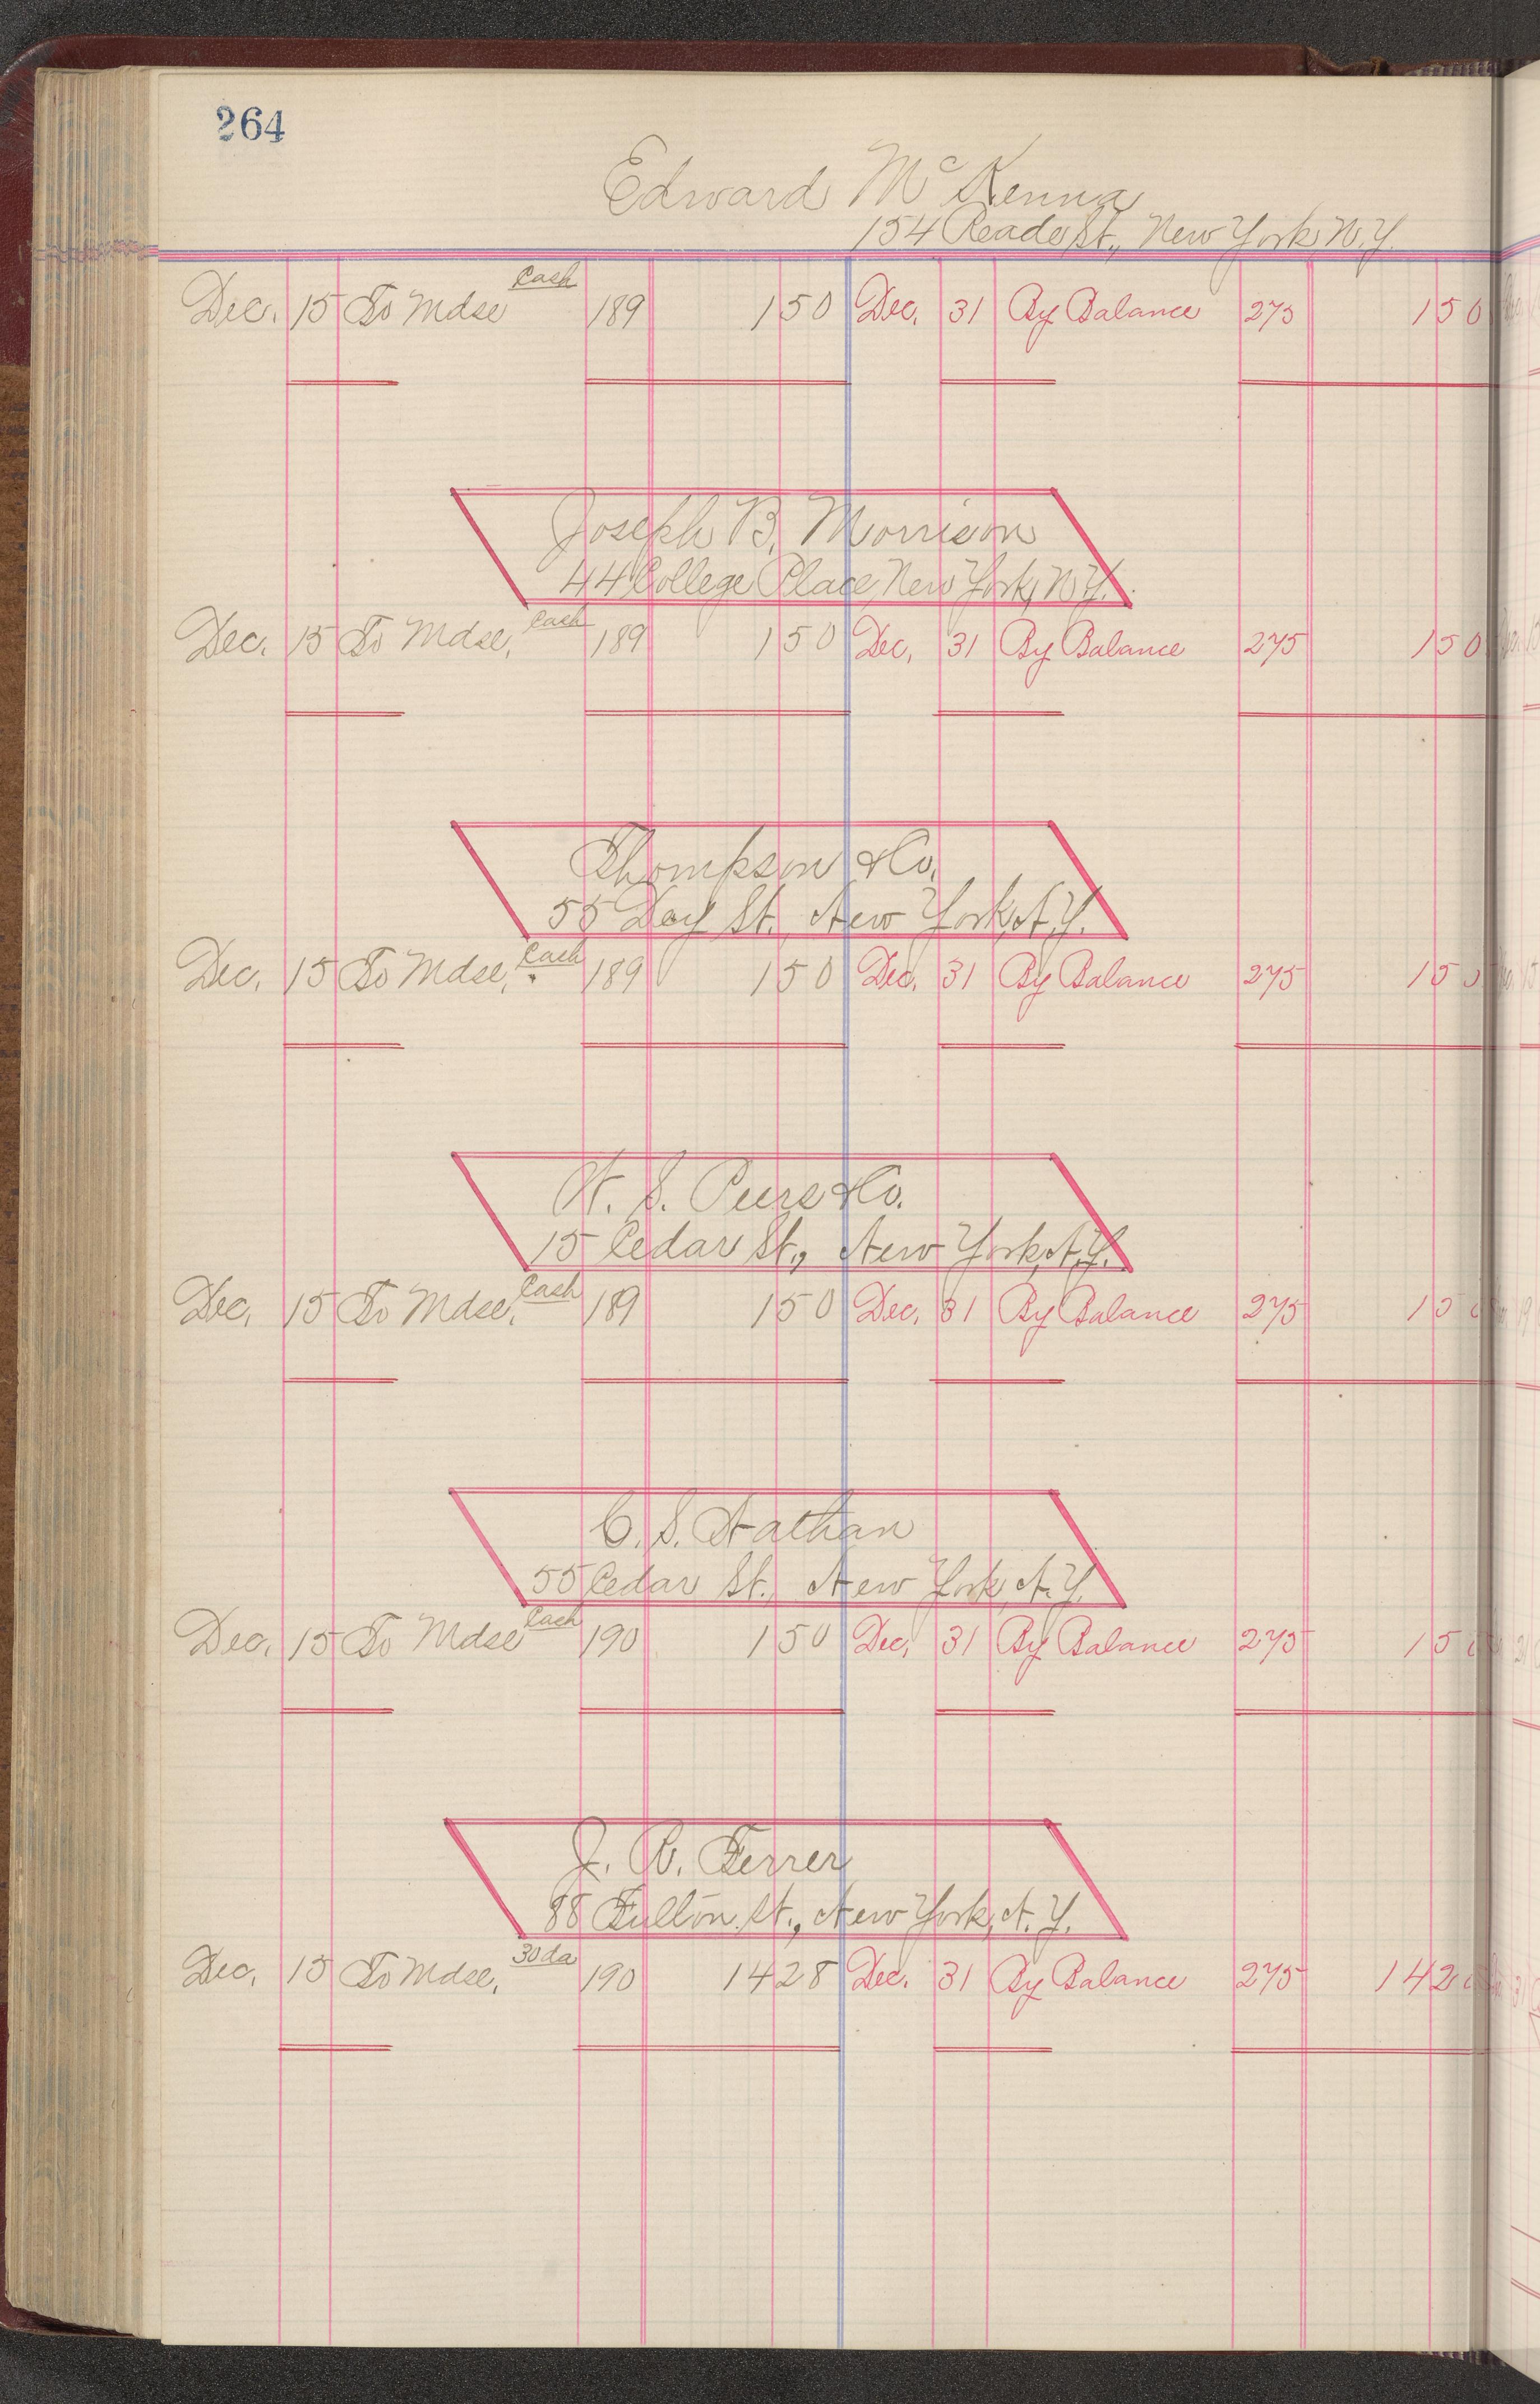 264
Edward McKenna
154 Reade St., New York, N.Y.
Cash
Dec. 15 To Mdse 189 150 Dec. 31 By Balance 275 150
Joseph B. Morrison
44 College Place, New York, N.Y.
Cash
Dec. 15 To Mdse, 189 150 Dec. 31 By Balance 275 150
Thompson & Co.
55 Dey St., New York, N.Y.
Cash
Dec. 15 To Mdse, 189 150 Dec. 31 By Balance 275 150
W. S. Peers & Co.
15 Cedar St., New York, N.Y.
Cash
Dec. 15 To Mdse, 189 150 Dec. 31 By Balance 275 150
C. S. Nathan
55 Cedar St., New York, N.Y.
Cash
Dec. 15 To Mdse 190 150 Dec. 31 By Balance 275 150
J. R. Ferrer
88 Fulton St., New York, N.Y.
30 da
Dec. 15 To Mdse, 190 1428 Dec. 31 By Balance 275 142